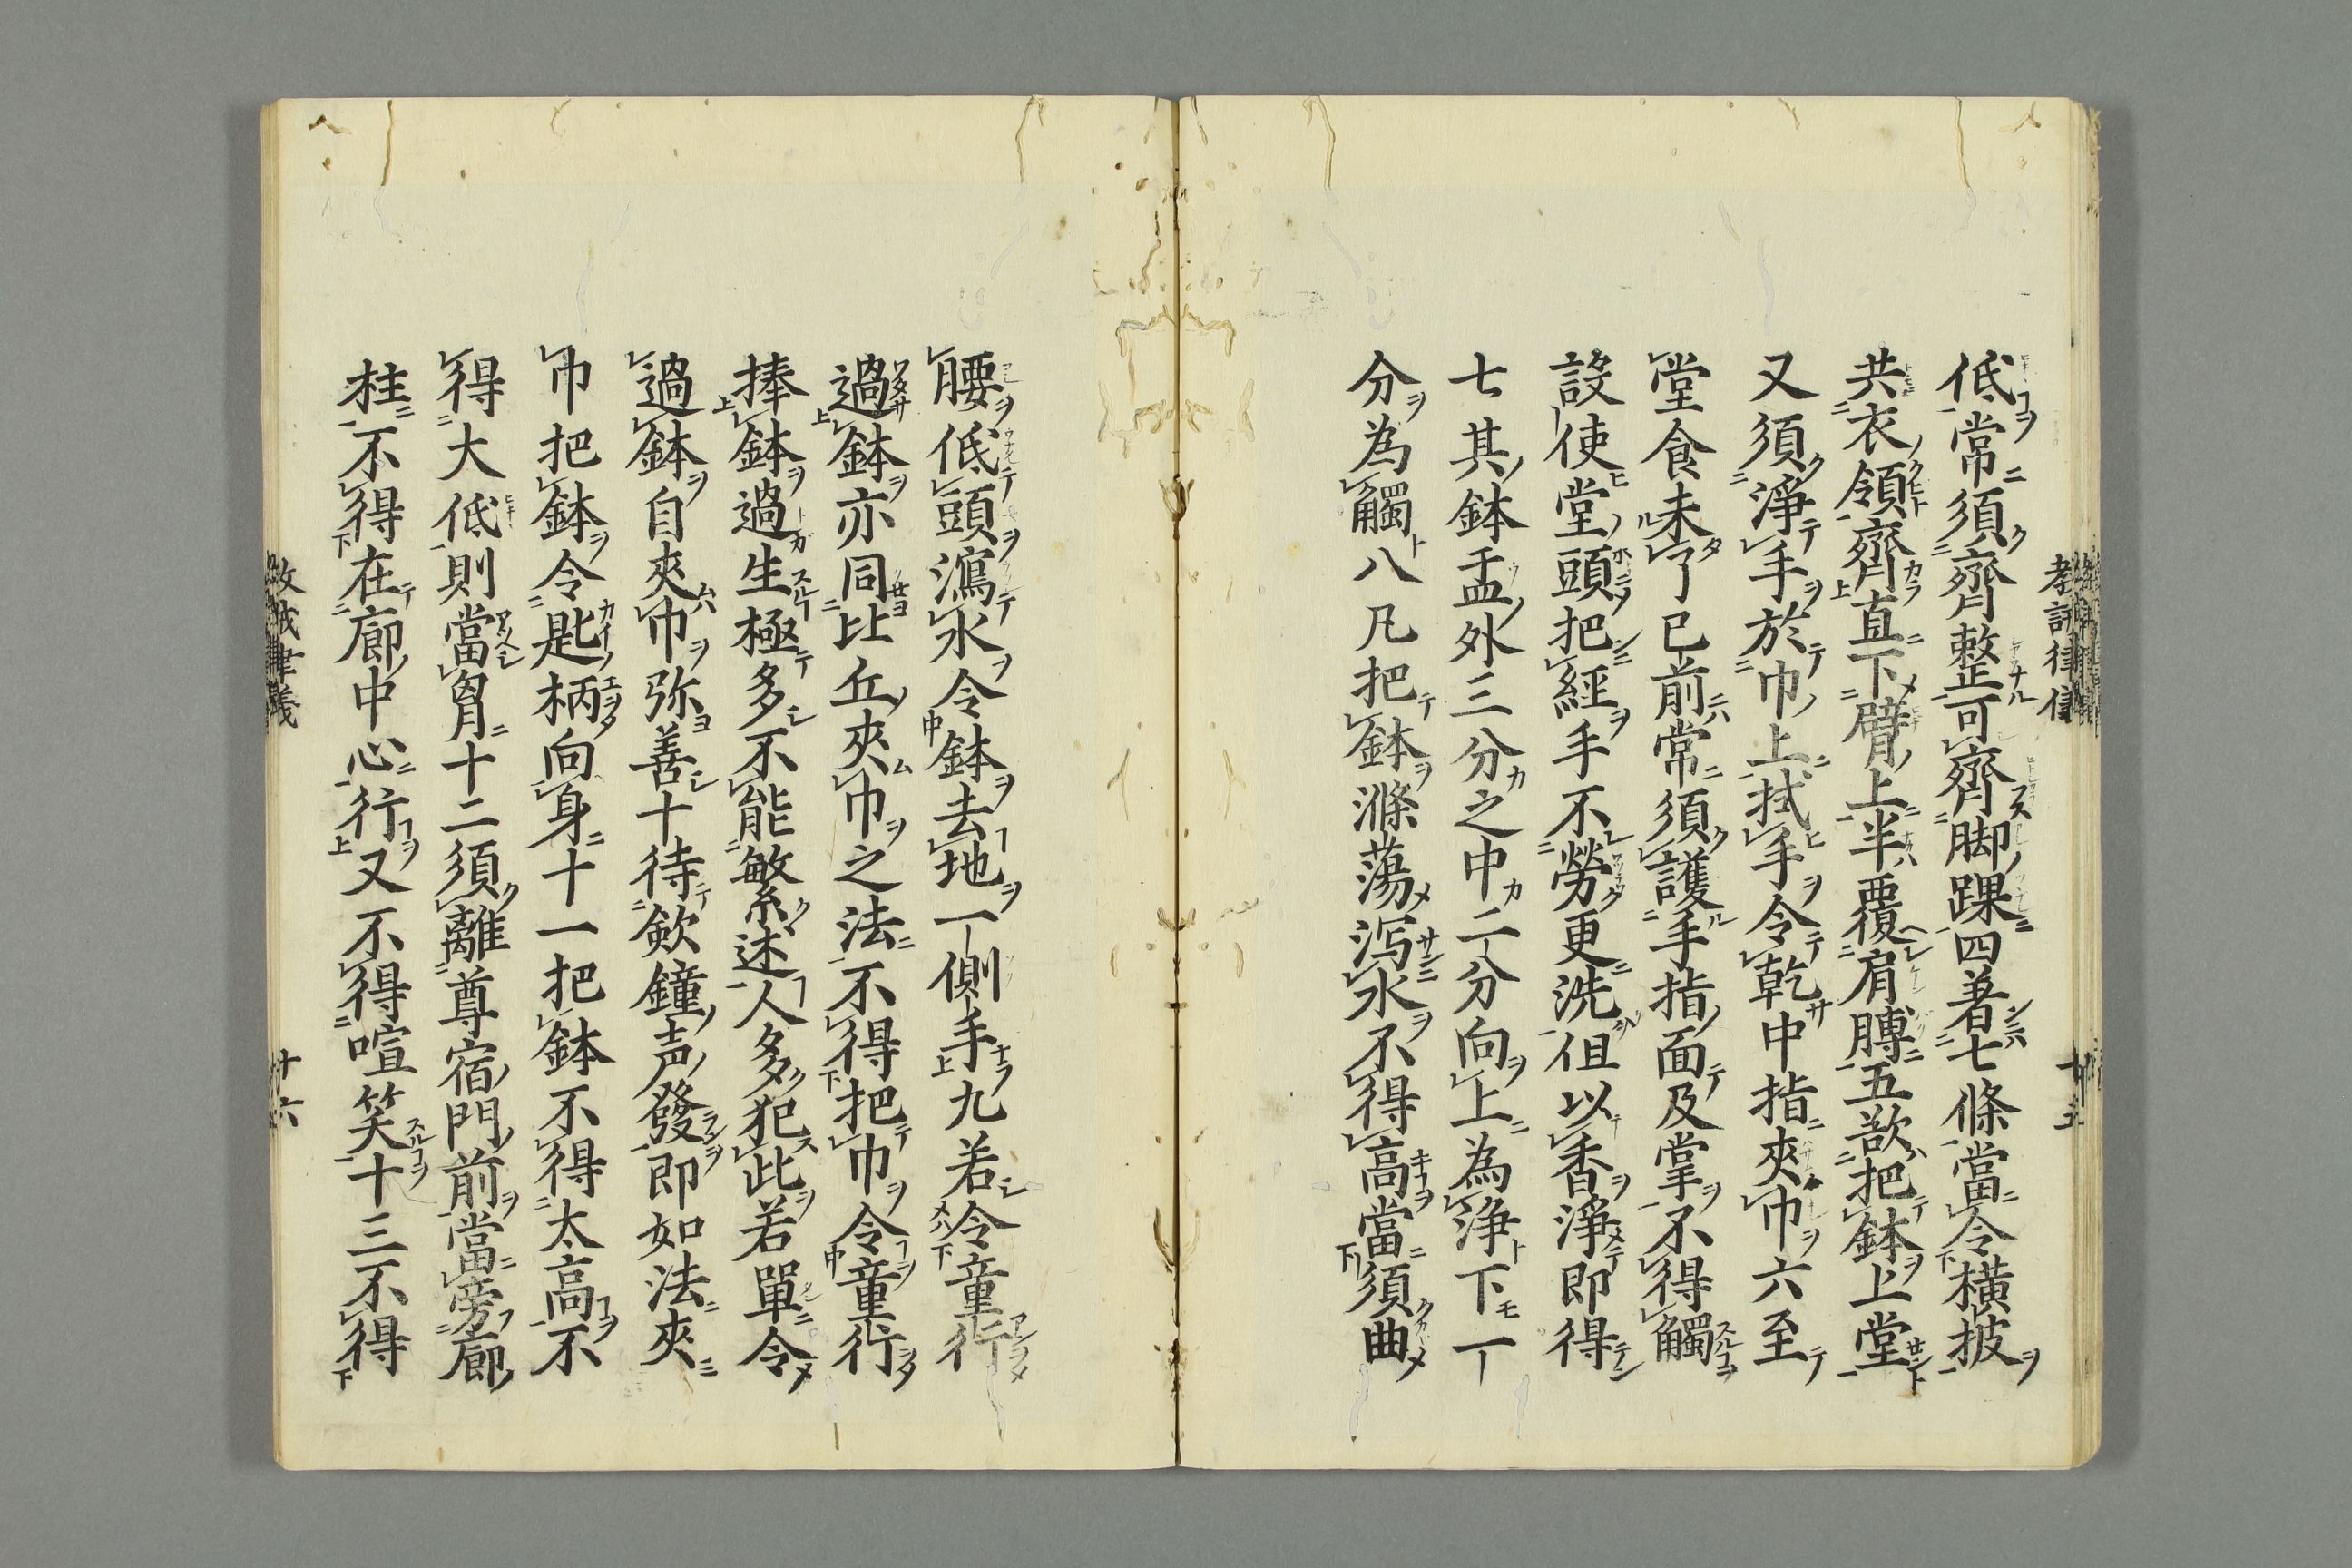 低常須齊整可齊脚踝四著七條當令橫披
共衣領齊直下臂上半覆肩膊五欲把鉢上堂
又須淨手於巾上拭手令乾中指夾巾六至
堂食未了已前常須護手指面及掌不得觸
設使堂頭把經手不勞更洗但以香淨即得
七其鉢盂外三分之中二分向上為淨下一
分為觸八凡把鉢滌蕩泻水不得高當須曲
腰低頭瀉水令鉢去地一側手九若令童行
過鉢亦同比丘夾巾之法不得把巾令童行
捧鉢過生極多不能繁述人多犯此若單令
過鉢自夾巾弥善十待欽鐘声發即如法夾
巾把鉢令匙柄向身十一把鉢不得太高不
得大低則當胷十二須離尊宿門前當旁廊
柱不得在廊中心行又不得喧笑十三不得
十六